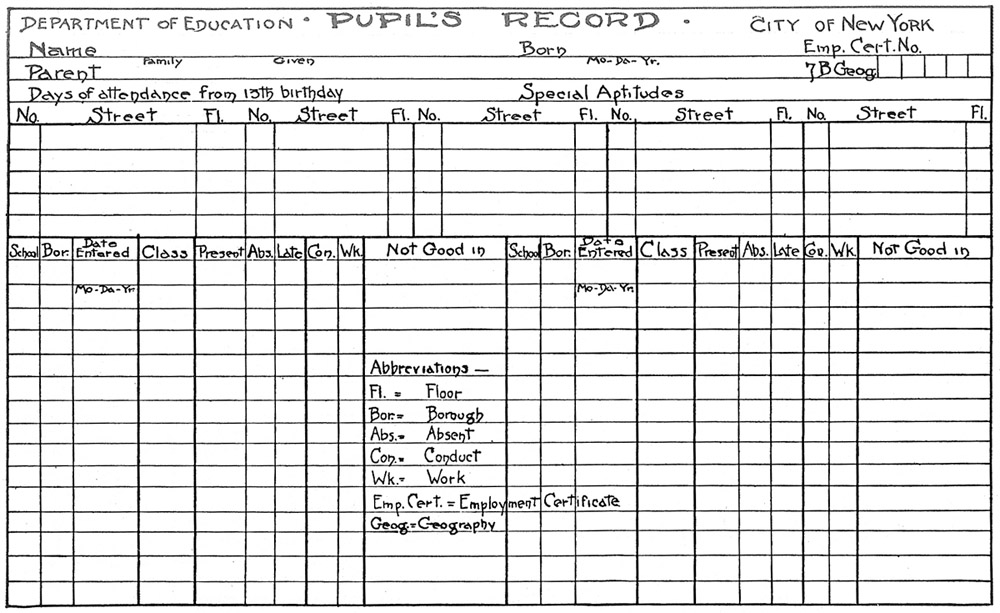 DEPARTMENT OF EDUCATION · PUPIL'S RECORD · CITY OF NEW YORK
Name Born Emp. Cert. No.
Family Given Mo-Da-Yr.
Parent 7B Geog.
Days of attendance from 13th birthday Special Aptitudes
No. Street Fl. No. Street Fl. No. Street Fl. No. Street Fl. No. Street Fl.
School Bor. Date Entered Class Present Abs. Late Con. Wk. Not Good in School Bor. Date Entered Class Present Abs. Late Con. Wk. Not Good in
Mo-Da-Yr. Mo-Da-Yr.
Abbreviations —
Fl. = Floor
Bor.= Borough
Abs.= Absent
Con.= Conduct
Wk.= Work
Emp. Cert. = Employment Certificate
Geog.=Geography